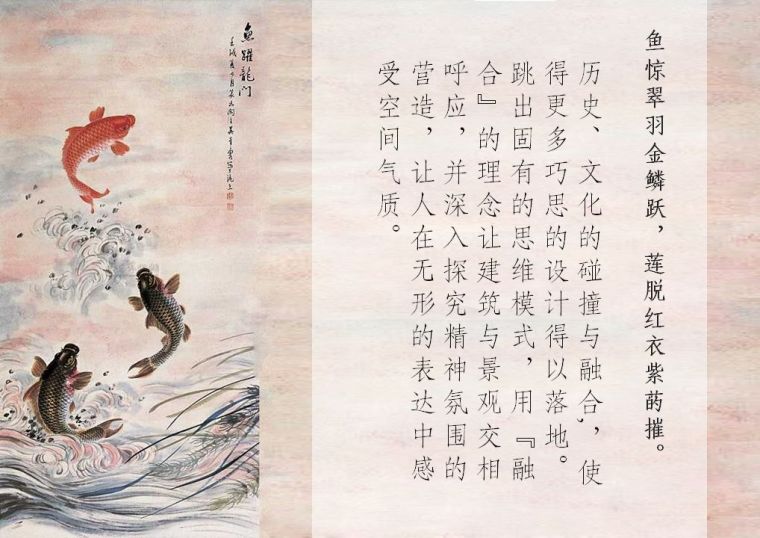 鱼惊翠羽金鳞跃，莲脱红衣紫菂摧。
历史、文化的碰撞与融合，使
得更多巧思的设计得以落地。
跳出固有的思维模式，用『融
合』的理念让建筑与景观交相
呼应，并深入探究精神氛围的
营造，让人在无形的表达中感
受空间气质。
魚躍龍门